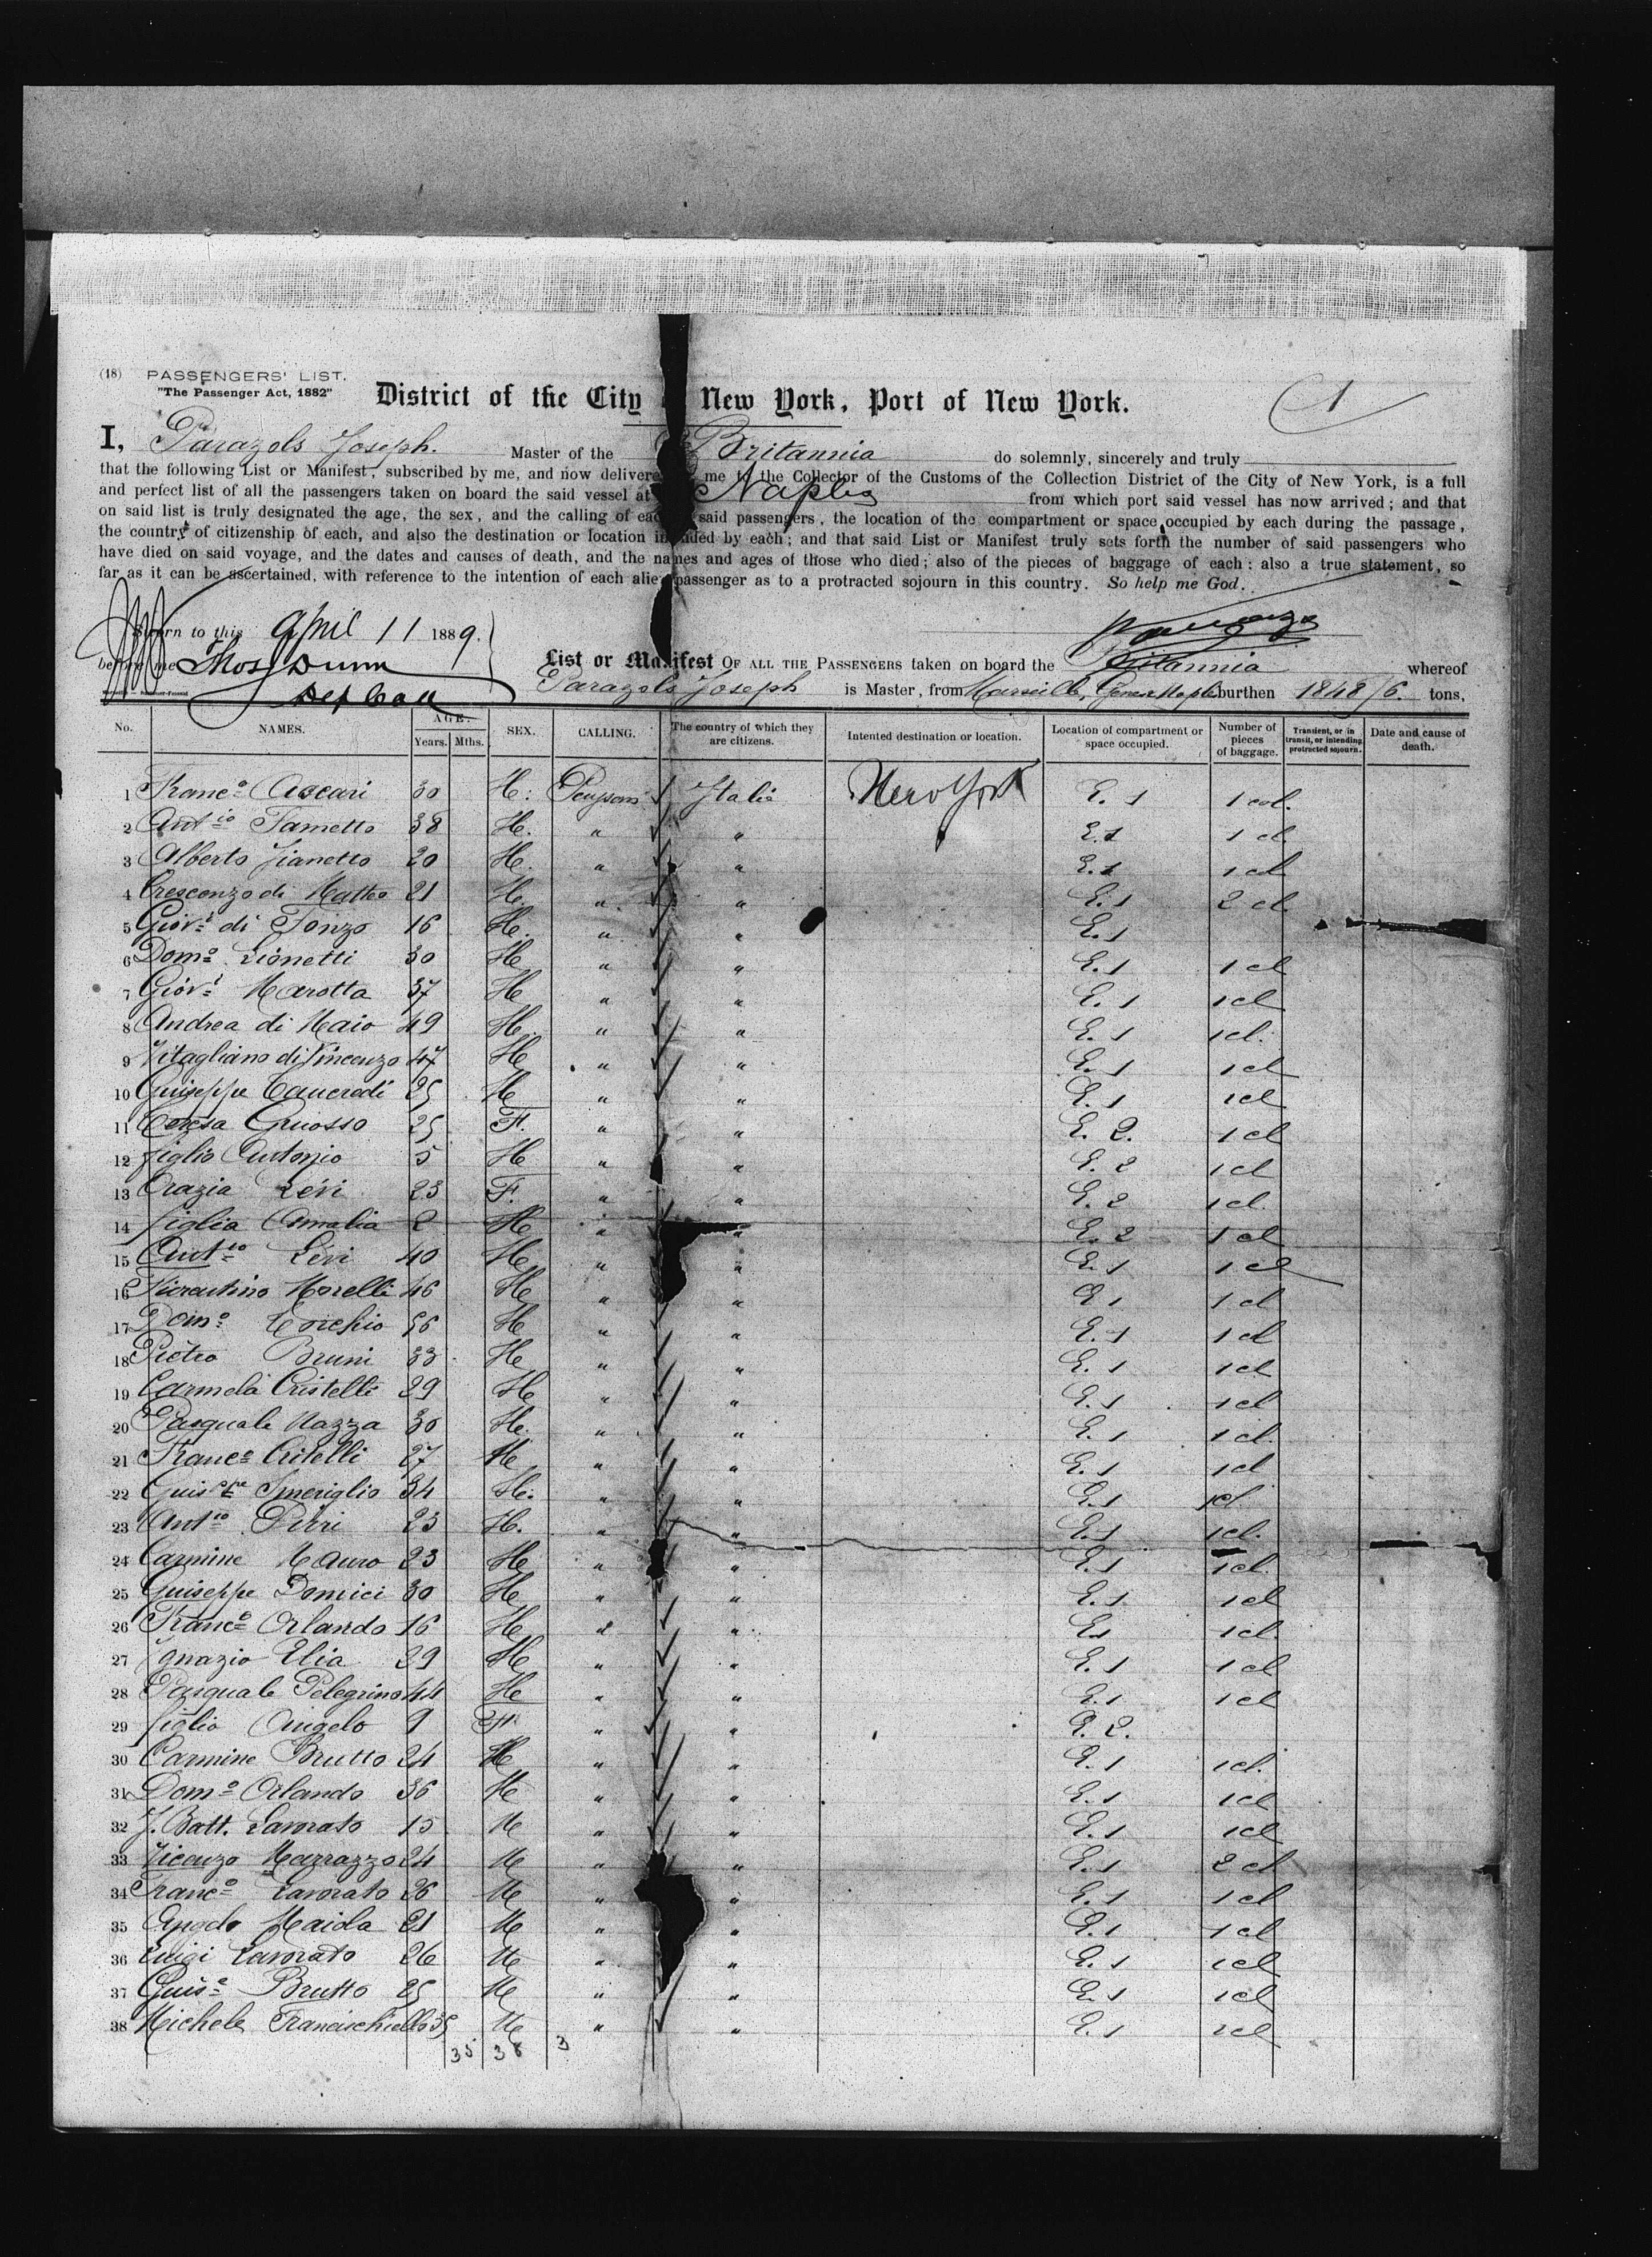 (18) PASSENGERS' LIST.
"The Passenger Act, 1882"
District of the City New York, Port of New York.
1
I, Parazols Joseph. Master of the Britannia do solemnly, sincerely and truly
that the following List or Manifest, subscribed by me, and now delivere me to the Collector of the Customs of the Collection District of the City of New York, is a full
and perfect list of all the passengers taken on board the said vessel at Naples from which port said vessel has now arrived; and that
on said list is truly designated the age, the sex, and the calling of eac said passengers, the location of the compartment or space occupied by each during the passage,
the country of citizenship of each, and also the destination or location in nded by each; and that said List or Manifest truly sets forth the number of said passengers who
have died on said voyage, and the dates and causes of death, and the names and ages of those who died; also of the pieces of baggage of each: also a true statement, so
far as it can be ascertained, with reference to the intention of each alie passenger as to a protracted sojourn in this country. So help me God.
Sworn to this April 11 1889.
before me Thos Dunn
Dep Coll
List or Manifest OF ALL THE PASSENGERS taken on board the Britannia whereof
Parazols Joseph is Master, from Marseille, Genes Naples burthen 1848 76. tons,
No. NAMES. AGE. Years. Mths. SEX. CALLING. The country of which they are citizens. Intented destination or location. Location of compartment or space occupied. Number of pieces of baggage. Transient, or in transit, or intending protracted sojourn. Date and cause of death.
1 Franco Ascari 30 M. Italie New York E. 1 1 col.
2 Antio Tametto 38 M. " " E.1 1 cl.
3 Alberto Zianetto 20 M. " " E.1 1 cl
4 Crescenzo di Matteo 21 M. " " E.1 2 cl.
5 Giovi di Fonzo 16 M. " " E.1
6 Domo Lionetti 30 M " " E.1 1 cl
7 Giovi Marotta 37 M " " E. 1 1 cl
8 Andrea di Maio 49 M. " " E.1 1 cl.
9 Vitagliano di Vincenzo 47 M " " E.1 1 cl
10 Guiseppe Tancredi 25 M " " E. 1 1 cl
11 Teresa Gruosso 25 F. " " E. 2. 1 cl
12 figlio Antonio 5 M " " E. 2 1 cl
13 Orazia Levi 23 F. " " E. 2 1 cl.
14 figlia Amalia 2 M " " E. 2 1 cl
15 Antio Levi 40 M " " E.1 1 cl
16 Fiorentino Morelli 46 M " " E 1 1 cl
17 Domo Torchio 56 M " " E. 1 1 cl
18 Pietro Bruni 33 M " " E. 1 1 cl
19 Carmela Cristelli 29 M " " E.1 1 cl
20 Pasquale Nazza 30 M. " " E. 1 1 cl.
21 Franco Critelli 27 M " " E.1 1 cl
22 Guispe Smeriglio 34 M. " " E.1 1 cl
23 Antio Pirri 23 M. " " E.1 1 cl.
24 Carmine Mauro 23 M " " E.1 1 cl.
25 Guiseppe Domici 30 M " " E.1 1 cl
26 Franco Orlando 16 M " " E1 1 cl.
27 Ignazio Elia 29 M " " E. 1 1 cl
28 Pasquale Pelegrino 44 M " " E.1 1 cl
29 figlio Angelo 9 " " E. 2.
30 Carmine Brutto 24 M " " E. 1 1 cl.
31 Domo Orlando 36 M " " E.1 1 cl
32 J. Batt. Lavorato 15 M " " E. 1 1 cl
33 Vicenzo Marrazzo 24 M " " E. 1 2 cl
34 Franco Lavorato 26 M " " E. 1 1 cl
35 Angelo Maida 21 M " " E.1 1 cl
36 Luigi Lavorato 26 M " " E. 1 1 cl
37 Guiso Brutto 25 M " " E. 1 1 cl
38 Michele Francischiello 35 M " " E. 1 1 cl
35 38 3